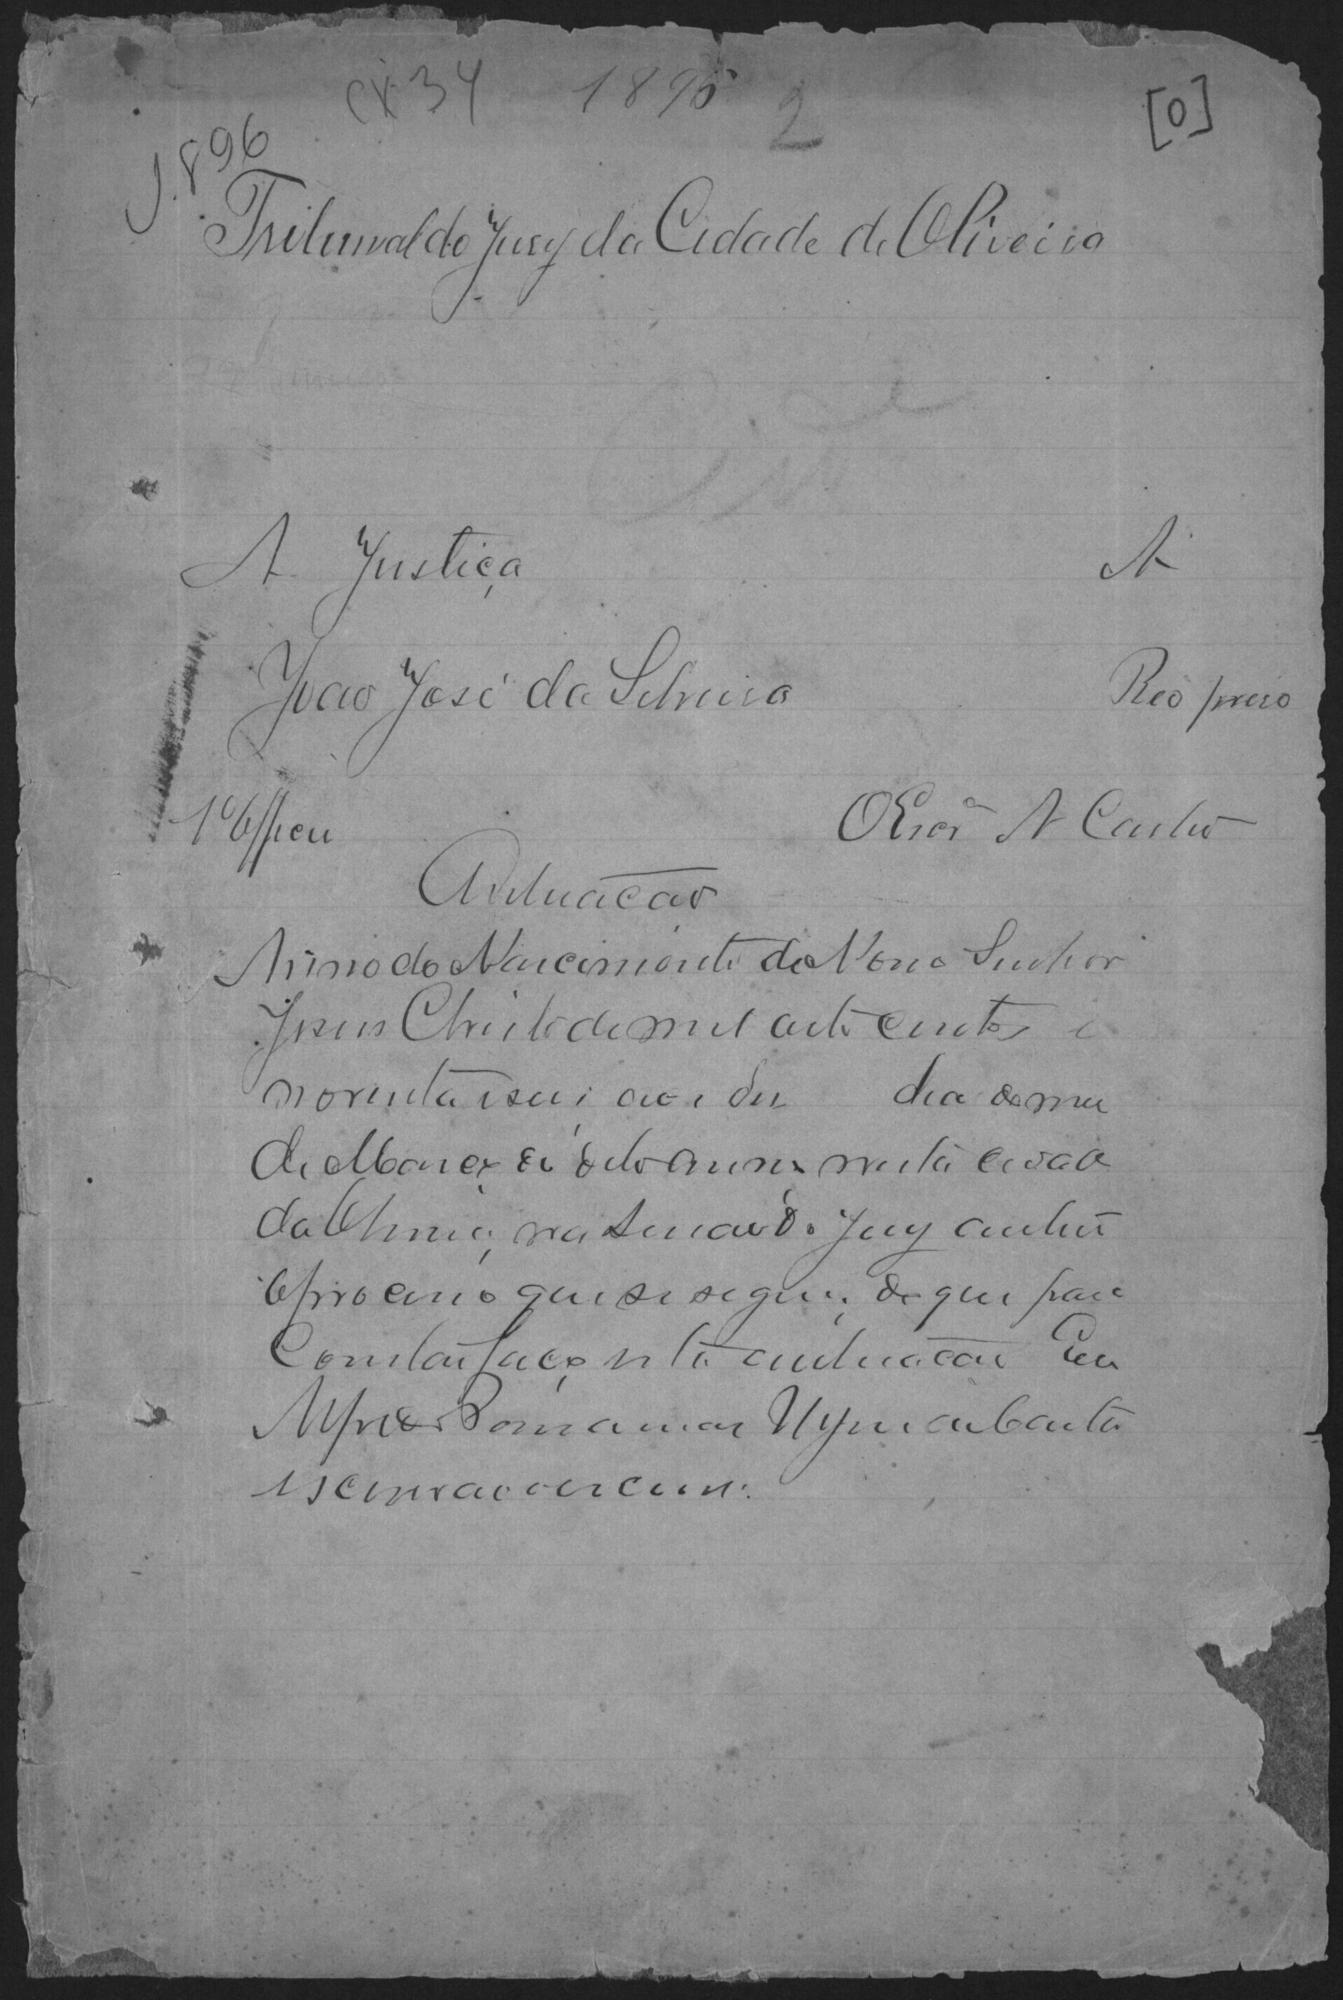 cx 34 1896 2 [0]
1896
Tribunal do Jury da Cidade de Oliveira
A Justiça A
João José da Silveira Reo preso
1º Offício O Escr.ão A Castro
Autuação
Anno do Nascimento de Nosso Senhor
Jesus Christo de mil oito centos e
noventa e seis aos dia do mez
de Março do dito anno nesta cidade
da Oliveira, na do Jury autuo
o processo que se segue; do que para
constar faço esta autuação Eu
Alfredo
escrivão o escrevi.